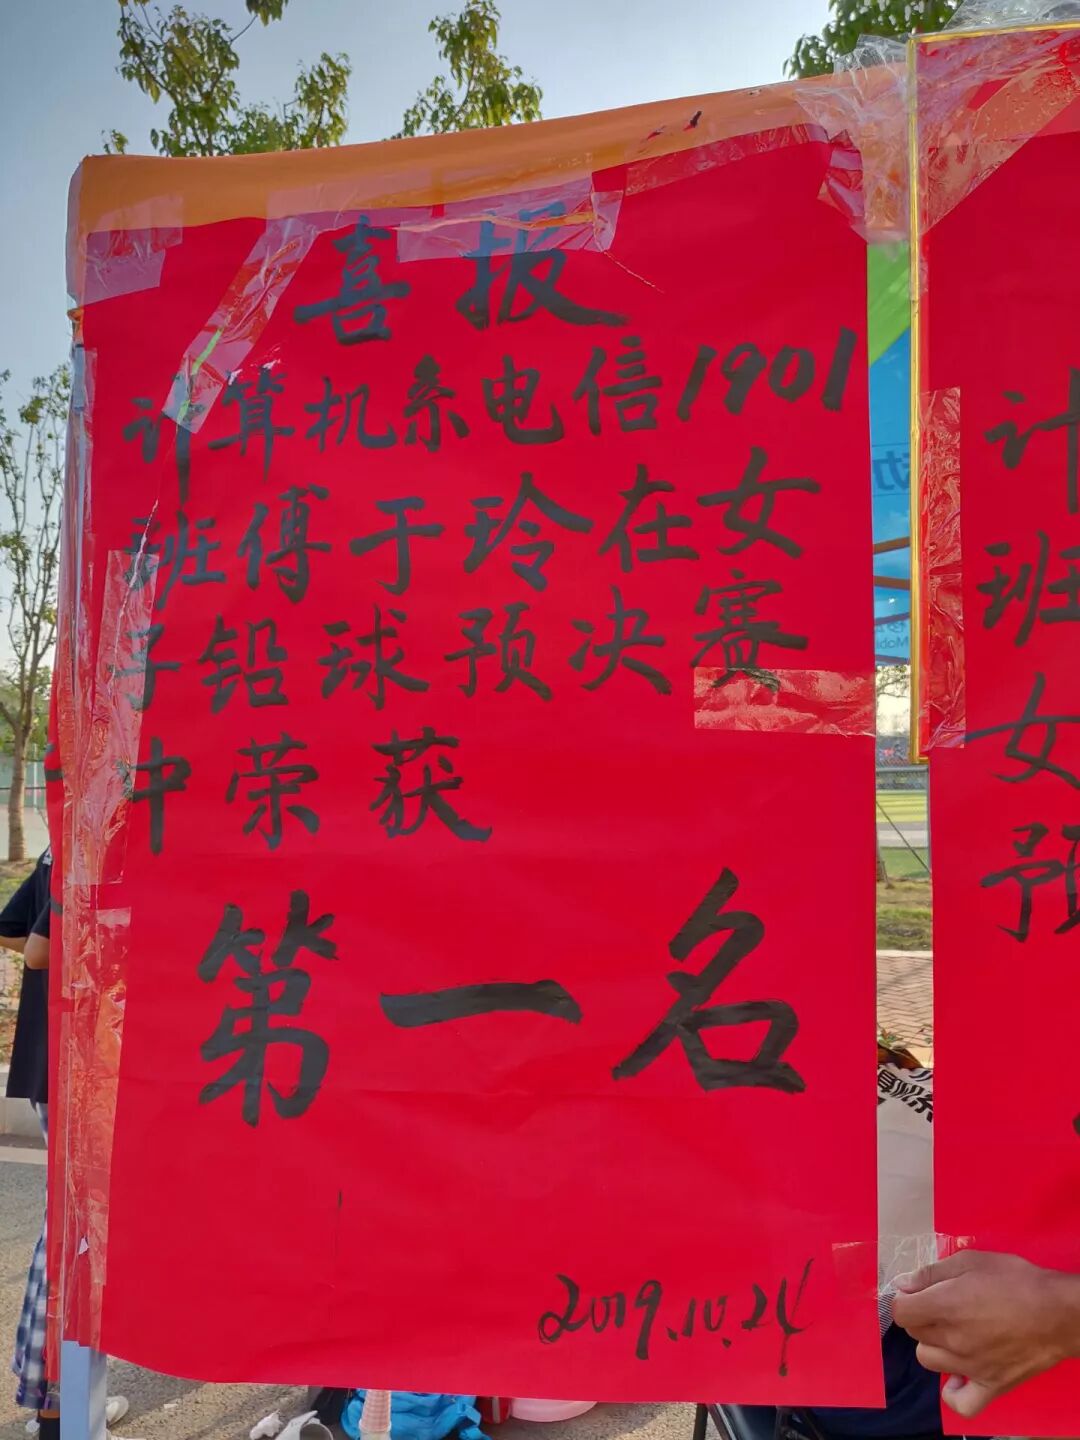 喜报
计算机系电信1901
班傅于玲在女
子铅球预决赛
中荣获
第一名
2019.10.24
计
班
女
预
动